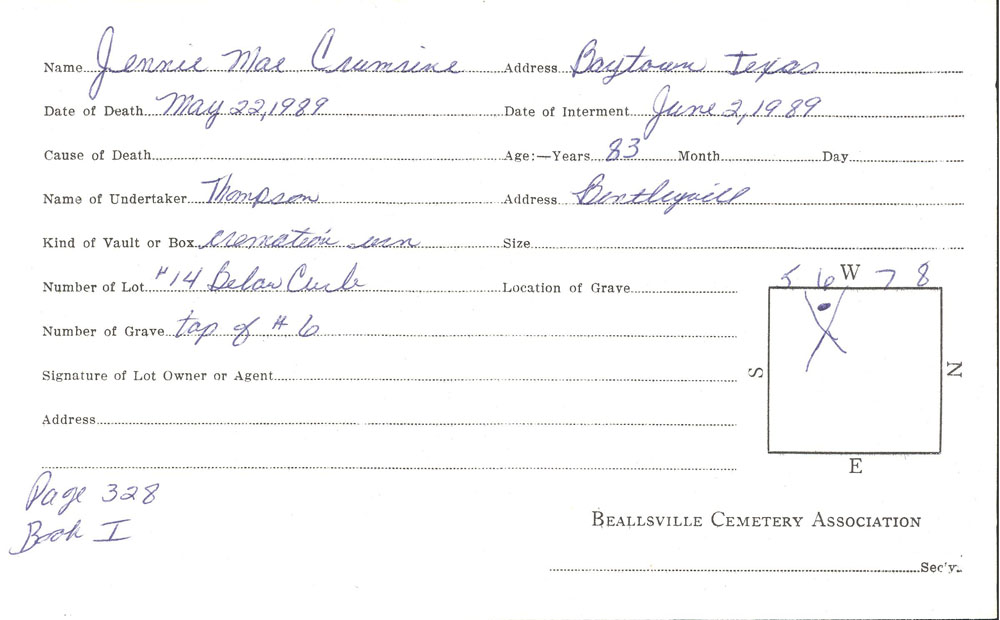 Name Jennie Mae Crumrine Address Baytown Texas
Date of Death May 22, 1989 Date of Interment June 2, 1989
Cause of Death Age:—Years 83 Month Day
Name of Undertaker Thompson Address Bentleyvill
Kind of Vault or Box cremation urn Size
Number of Lot #14 Below Circle Location of Grave
5 6 W 7 8
Number of Grave top of #6
Signature of Lot Owner or Agent
S N
Address
E
Page 328
Book I
BEALLSVILLE CEMETERY ASSOCIATION
Sec'y.